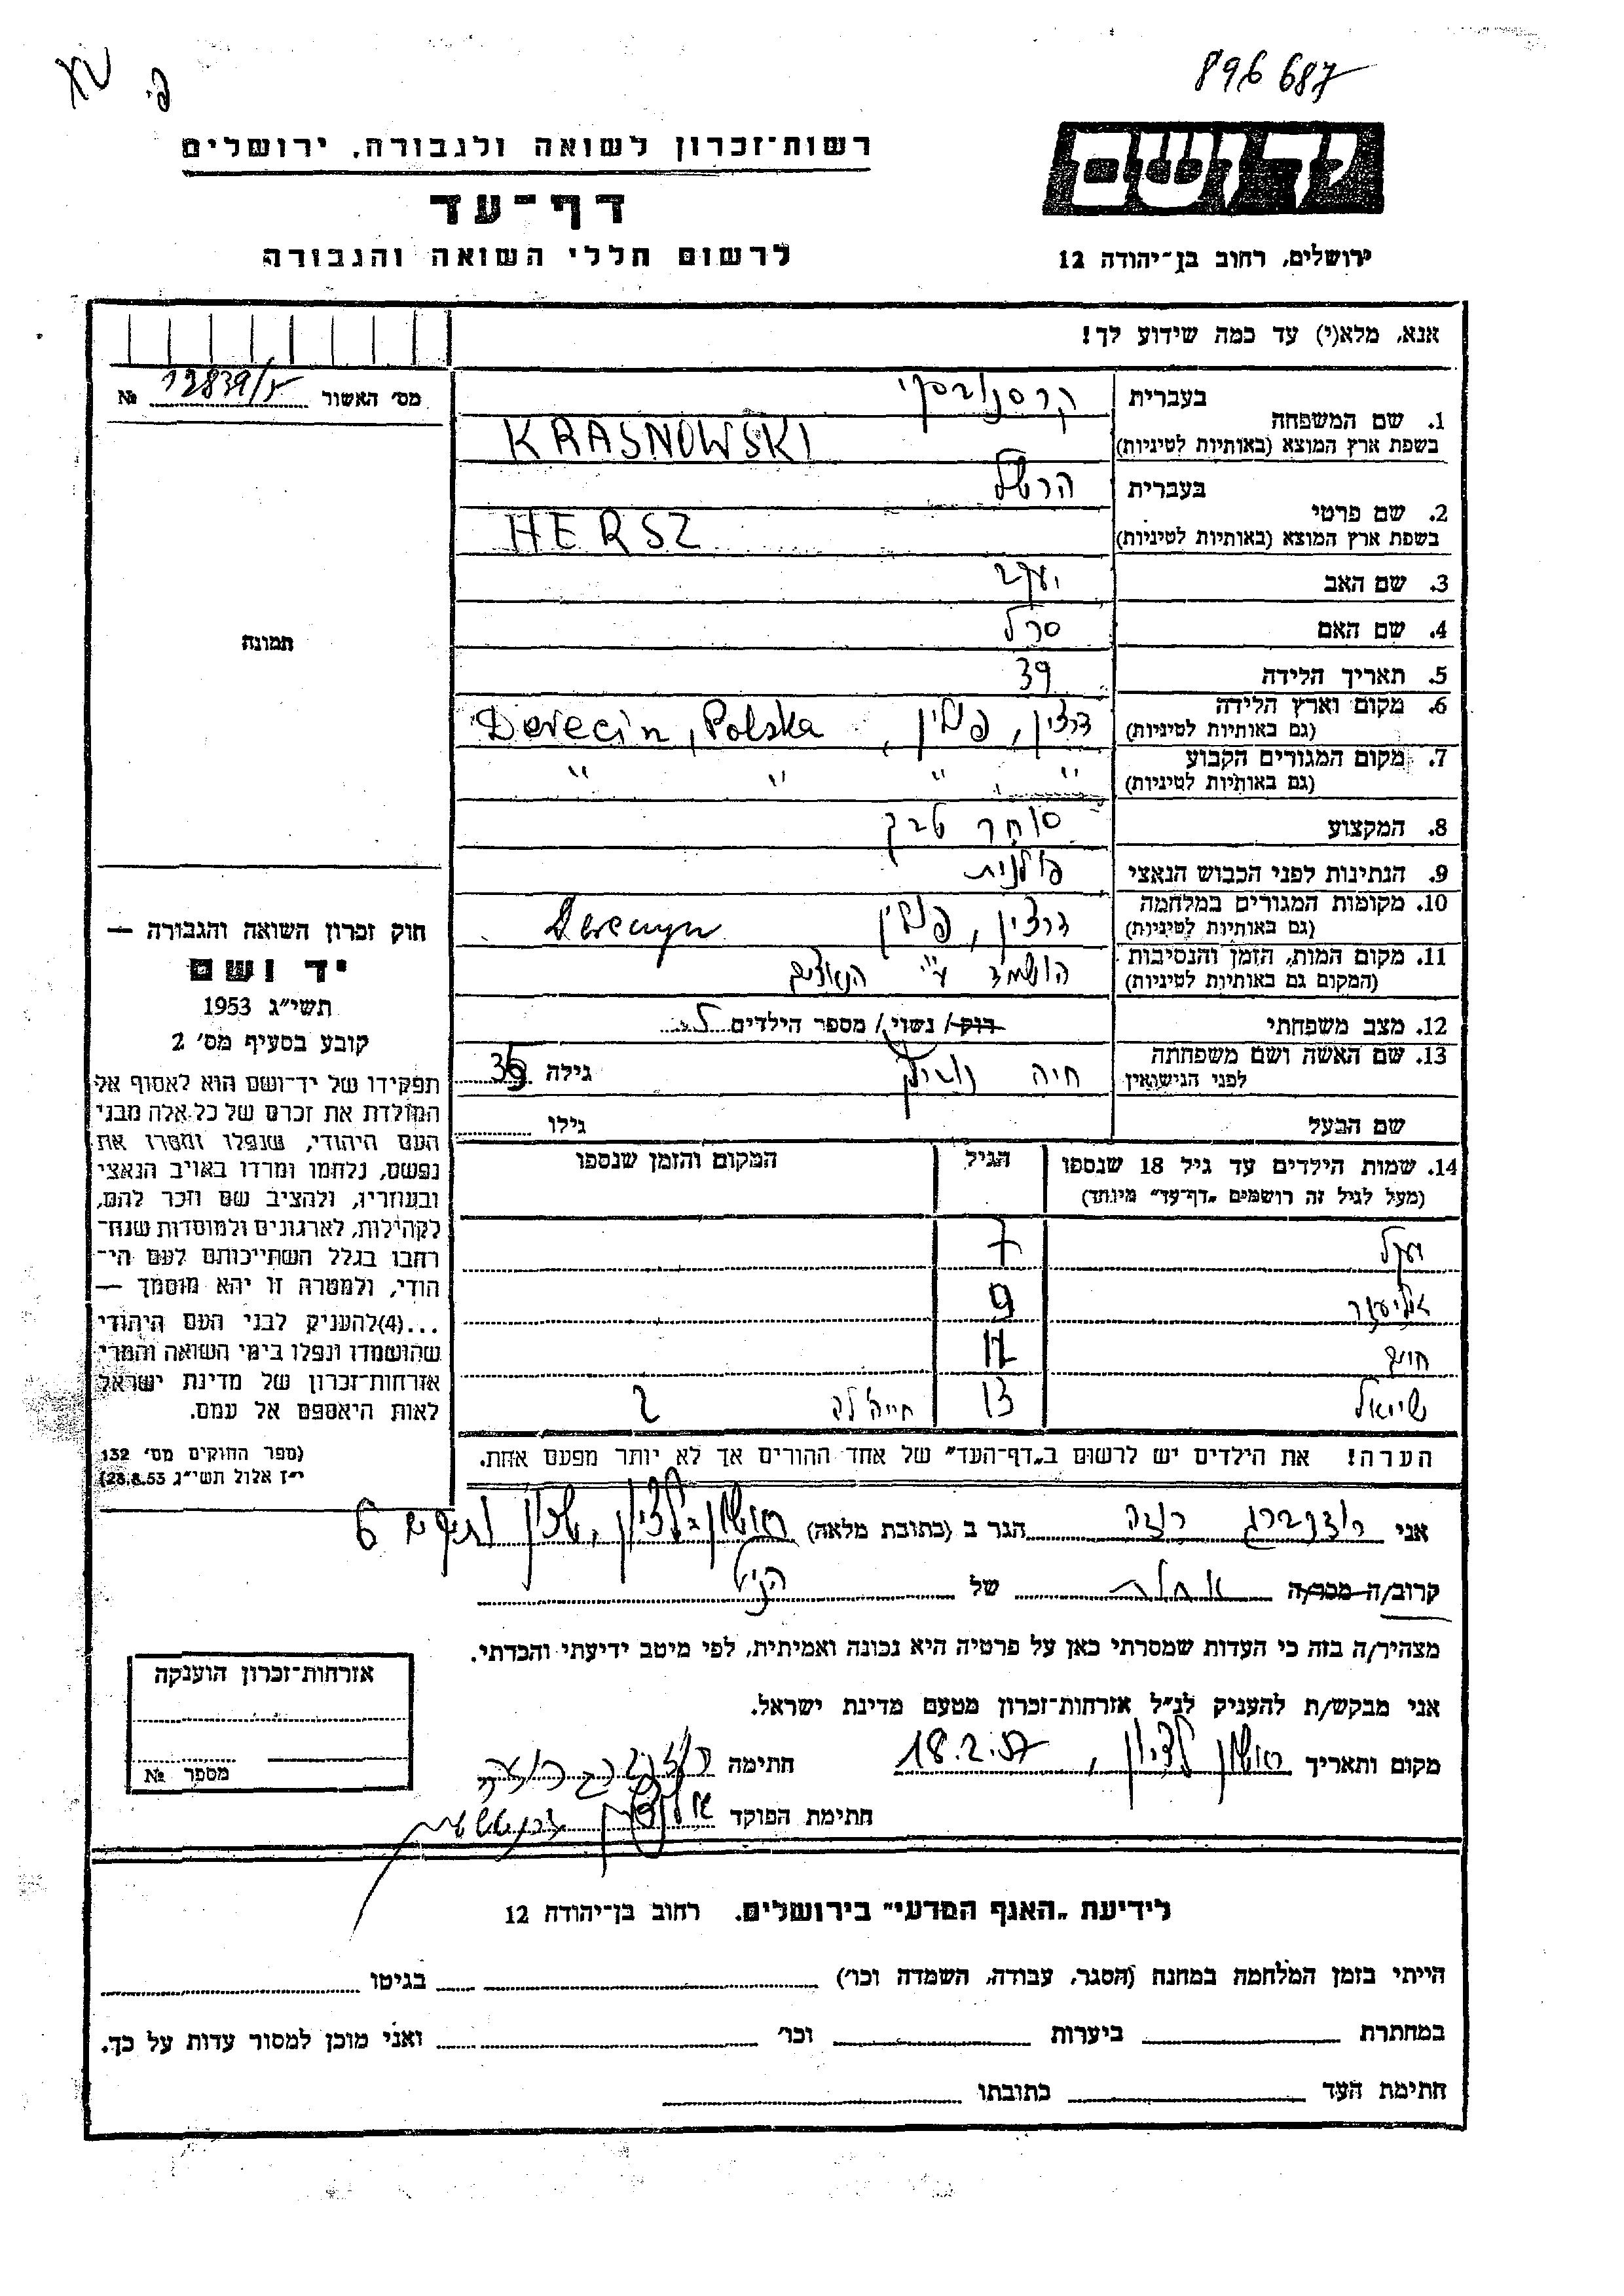 896 687
פ.
רשות־זכרון לשואה ולגבורה, ירושלים
דף־עד
לרשום חללי השואה והגבורה
יד ושם
ירושלים, רחוב בן־יהודה 12
אנא, מלא(י) עד כמה שידוע לך!
מס' האשור № 12839/
תמונה
1. שם המשפחה
בעברית קרסנובסקי
בשפת ארץ המוצא (באותיות לטיניות) KRASNOWSKI
2. שם פרטי
בעברית הרשל
בשפת ארץ המוצא (באותיות לטיניות) HERSZ
3. שם האב יעקב
4. שם האם סרל
5. תאריך הלידה 39
6. מקום וארץ הלידה דרצין, פולין, Derecin, Polska
(גם באותיות לטיניות)
7. מקום המגורים הקבוע " " " "
(גם באותיות לטיניות)
8. המקצוע סוחר טבק
9. הנתינות לפני הכבוש הנאצי פולנית
10. מקומות המגורים במלחמה דרצין, פולין Dereczyn
(גם באותיות לטיניות)
11. מקום המות, הזמן והנסיבות הושמד ע"י הנאצים
(המקום גם באותיות לטיניות)
12. מצב משפחתי רוק / נשוי / מספר הילדים
13. שם האשה ושם משפחתה
לפני הנישואין חיה גילה
שם הבעל גילו
14. שמות הילדים עד גיל 18 שנספו
(מעל לגיל זה רושמים „דף־עד" מיוחד)
הגיל
המקום והזמן שנספו
יענקל 7
אליעזר 9
חיים
שמואל 13 חייה'לה 2
הערה! את הילדים יש לרשום ב„דף־העד" של אחד ההורים אך לא יותר מפעם אחת.
חוק זכרון השואה והגבורה —
יד ושם
תשי"ג 1953
קובע בסעיף מס' 2
תפקידו של יד־ושם הוא לאסוף אל
המולדת את זכרם של כל אלה מבני
העם היהודי, שנפלו ומסרו את
נפשם, נלחמו ומרדו באויב הנאצי
ובעוזריו, ולהציב שם וזכר להם,
לקהילות, לארגונים ולמוסדות שנח־
רבו בגלל השתייכותם לעם הי־
הודי, ולמטרה זו יהא מוסמך —
...(4)להעניק לבני העם היהודי
שהושמדו ונפלו בימי השואה והמרי
אזרחות־זכרון של מדינת ישראל
לאות היאספם אל עמם.
(ספר החוקים מס' 132
י"ז אלול תשי"ג 28.8.53)
אני רוזנברג רוזה הגר ב (כתובת מלאה) ראשון לציון, שכון ותיקים 6
קרוב/ה מכר/ה אחות של הנ"ל
מצהיר/ה בזה כי העדות שמסרתי כאן על פרטיה היא נכונה ואמיתית, לפי מיטב ידיעתי והכרתי.
אני מבקש/ת להעניק לנ"ל אזרחות־זכרון מטעם מדינת ישראל.
מקום ותאריך ראשון לציון, 18.2.57 חתימה רוזנברג רוזה
חתימת הפוקד
אזרחות־זכרון הוענקה
מספר №
לידיעת „האגף המדעי" בירושלים. רחוב בן־יהודה 12
הייתי בזמן המלחמה במחנה (הסגר, עבודה, השמדה וכו') בגיטו
במחתרת ביערות וכו' ואני מוכן למסור עדות על כך.
חתימת העד כתובתו